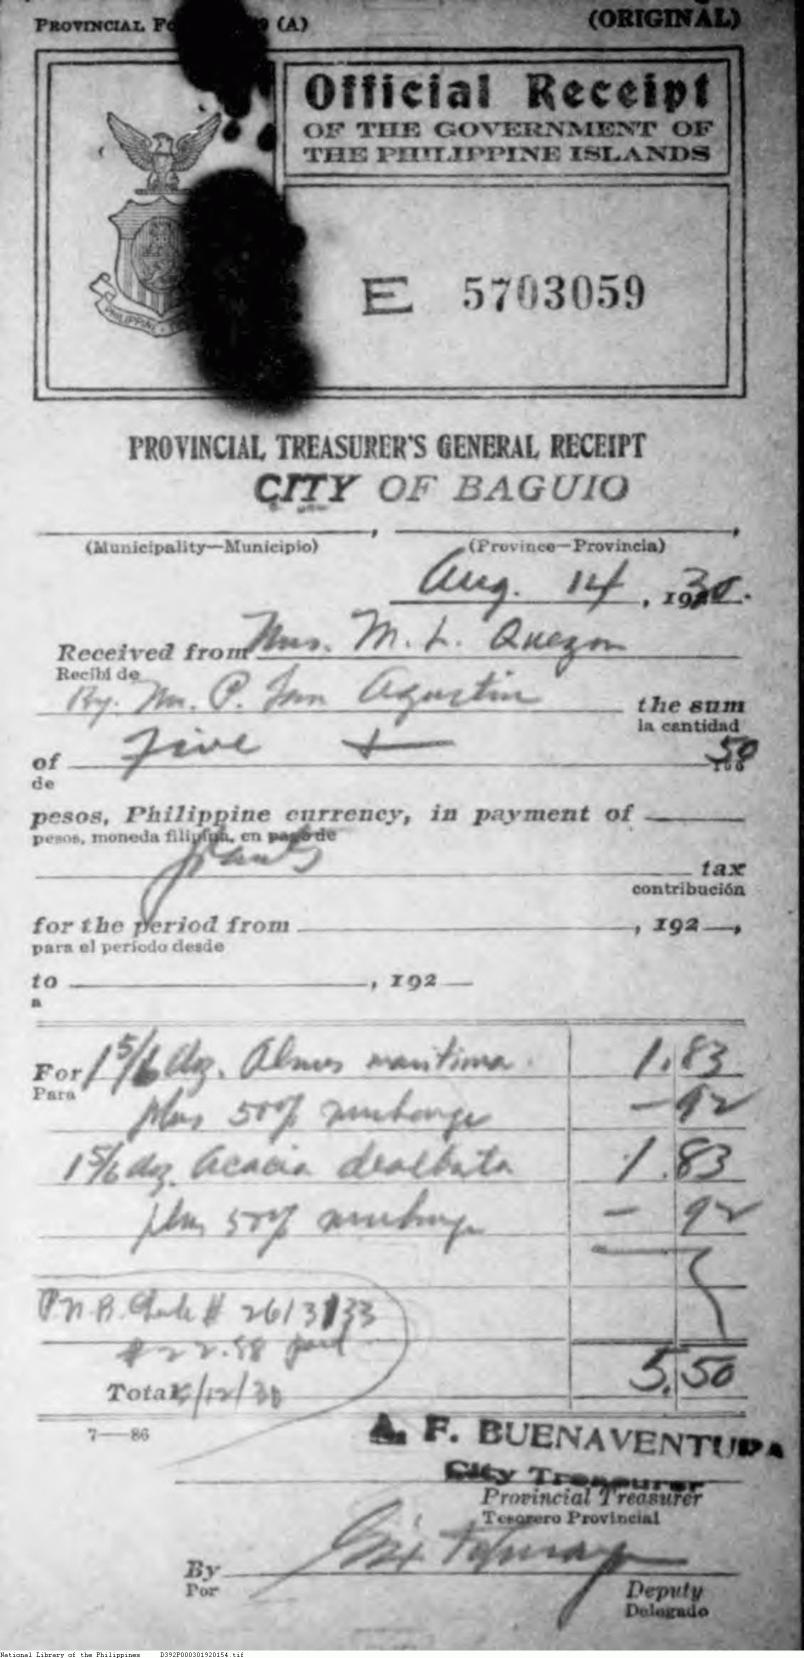 PROVINCIAL (A)
(ORIGINAL)
Official Receipt
OF THE GOVERNMENT OF
THE PHILIPPINE ISLANDS
E 5703059
PHILIPPINE
PROVINCIAL TREASURER'S GENERAL RECEIPT
CITY OF BAGUIO
(Municipality—Municipio) , (Province—Provincia) ,
Aug. 14, 1930.
Received from Mrs. M. L. Quezon
Recibí de
By. Mr. P. San Agustin the sum
la cantidad
of Five + 50
de 100
pesos, Philippine currency, in payment of
pesos, moneda filipina, en pago de
plants
tax
contribución
for the period from , 192 ,
para el período desde
to , 192
a
For 1 5/6 doz. maritima 1.83
Para
plus 50% surcharge — 92
1 5/6 doz. Acacia dealbata 1.83
plus 50% surcharge — 92
P.N.B. Check # 2613133
22.88 paid
Total 5.50
/12/30
7—86
A. F. BUENAVENTURA
City Treasurer
Provincial Treasurer
Tesorero Provincial
By
Por
Deputy
Delegado
National Library of the Philippines D392P000301920154.tif